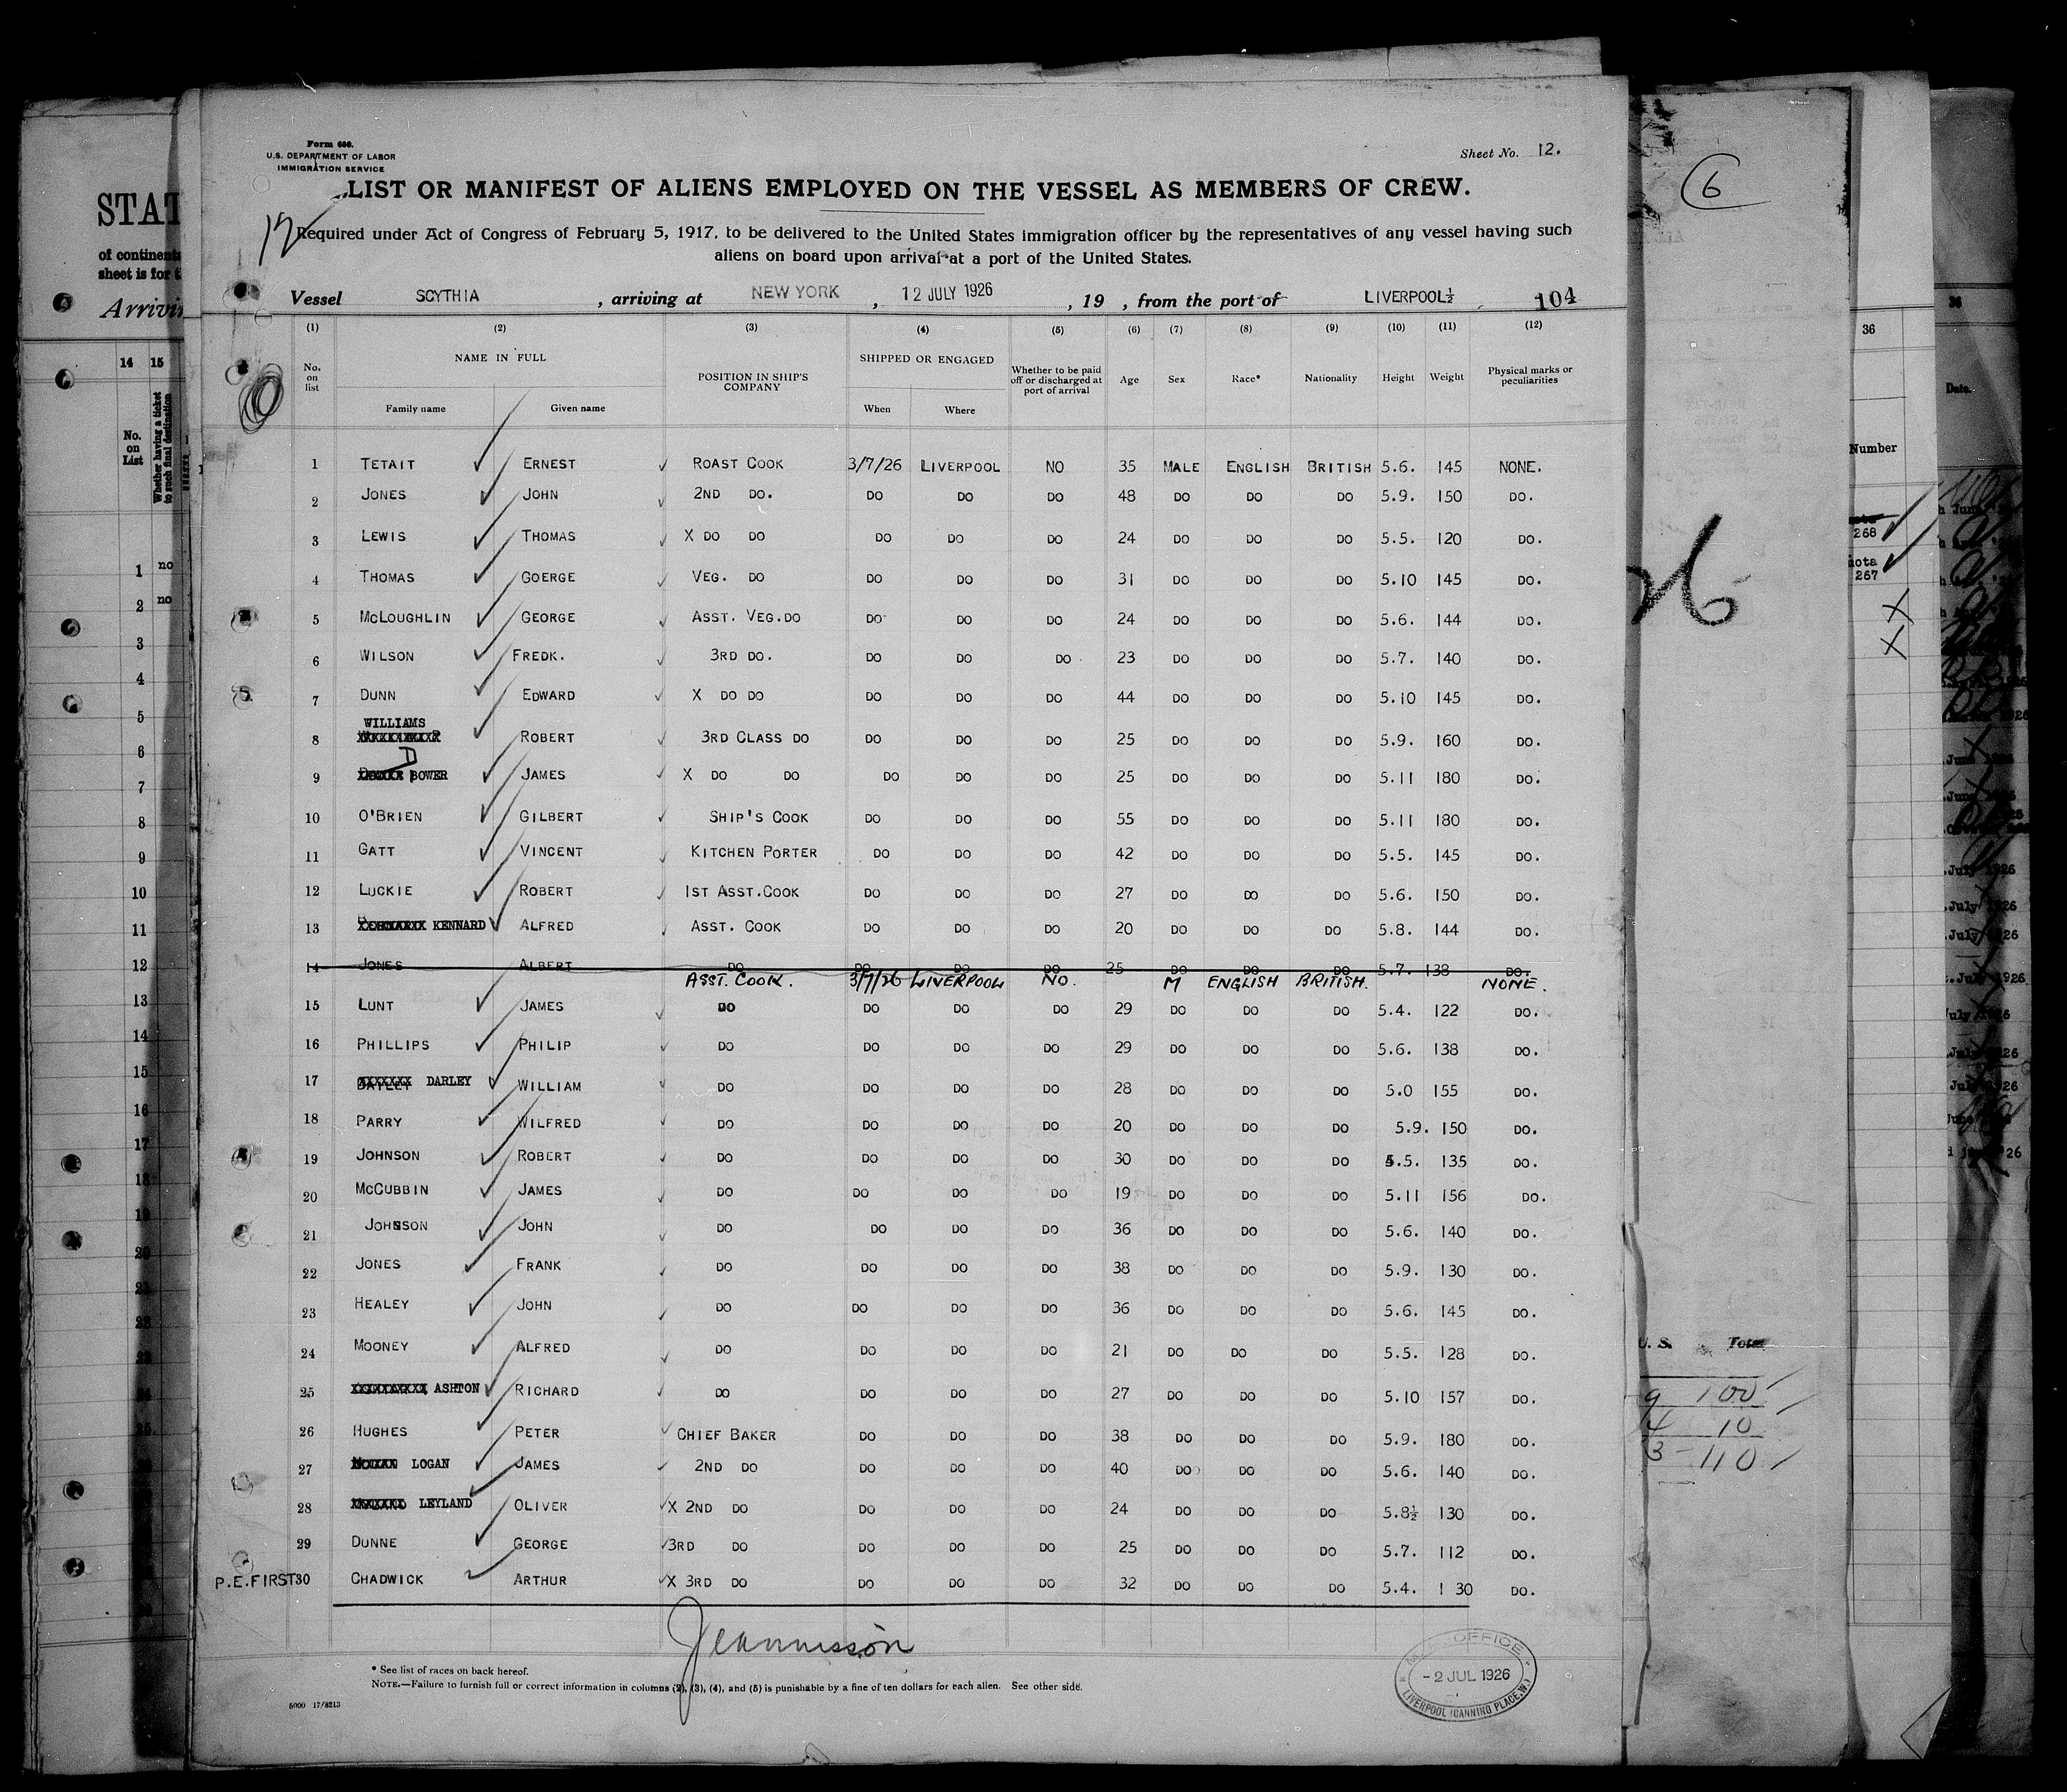 Form 680.
U.S. DEPARTMENT OF LABOR
IMMIGRATION SERVICE
Sheet No. 12.
LIST OR MANIFEST OF ALIENS EMPLOYED ON THE VESSEL AS MEMBERS OF CREW.
12
Required under Act of Congress of February 5, 1917, to be delivered to the United States immigration officer by the representatives of any vessel having such
aliens on board upon arrival at a port of the United States.
Vessel SCYTHIA, arriving at NEW YORK, 12 JULY 1926, 19 , from the port of LIVERPOOL½ 104
(1) (2) (3) (4) (5) (6) (7) (8) (9) (10) (11) (12)
No. on list NAME IN FULL Family name Given name POSITION IN SHIP'S COMPANY SHIPPED OR ENGAGED When Where Whether to be paid off or discharged at port of arrival Age Sex Race* Nationality Height Weight Physical marks or peculiarities
1 TETAIT ERNEST ROAST COOK 3/7/26 LIVERPOOL NO 35 MALE ENGLISH BRITISH 5.6. 145 NONE.
2 JONES JOHN 2ND DO. DO DO DO 48 DO DO DO 5.9. 150 DO.
3 LEWIS THOMAS X DO DO DO DO DO 24 DO DO DO 5.5. 120 DO.
4 THOMAS GOERGE VEG. DO DO DO DO 31 DO DO DO 5.10 145 DO.
5 MCLOUGHLIN GEORGE ASST. VEG.DO DO DO DO 24 DO DO DO 5.6. 144 DO.
6 WILSON FREDK. 3RD DO. DO DO DO 23 DO DO DO 5.7. 140 DO.
7 DUNN EDWARD X DO DO DO DO DO 44 DO DO DO 5.10 145 DO.
8 WILLIAMS ROBERT 3RD CLASS DO DO DO DO 25 DO DO DO 5.9. 160 DO.
9 D BOWER JAMES X DO DO DO DO DO 25 DO DO DO 5.11 180 DO.
10 O'BRIEN GILBERT SHIP'S COOK DO DO DO 55 DO DO DO 5.11 180 DO.
11 GATT VINCENT KITCHEN PORTER DO DO DO 42 DO DO DO 5.5. 145 DO.
12 LUCKIE ROBERT 1ST ASST.COOK DO DO DO 27 DO DO DO 5.6. 150 DO.
13 KENNARD ALFRED ASST. COOK DO DO DO 20 DO DO DO 5.8. 144 DO.
14 JONES ALBERT DO DO DO DO 25 DO DO DO 5.7. 138 DO.
ASST. COOK. 3/7/26 LIVERPOOL NO. M ENGLISH BRITISH. NONE.
15 LUNT JAMES DO DO DO DO 29 DO DO DO 5.4. 122 DO.
16 PHILLIPS PHILIP DO DO DO DO 29 DO DO DO 5.6. 138 DO.
17 DARLEY WILLIAM DO DO DO DO 28 DO DO DO 5.0 155 DO.
18 PARRY WILFRED DO DO DO DO 20 DO DO DO 5.9. 150 DO.
19 JOHNSON ROBERT DO DO DO DO 30 DO DO DO 5.5. 135 DO.
20 MCCUBBIN JAMES DO DO DO DO 19 DO DO DO 5.11 156 DO.
21 JOHNSON JOHN DO DO DO DO 36 DO DO DO 5.6. 140 DO.
22 JONES FRANK DO DO DO DO 38 DO DO DO 5.9. 130 DO.
23 HEALEY JOHN DO DO DO DO 36 DO DO DO 5.6. 145 DO.
24 MOONEY ALFRED DO DO DO DO 21 DO DO DO 5.5. 128 DO.
25 ASHTON RICHARD DO DO DO DO 27 DO DO DO 5.10 157 DO.
26 HUGHES PETER CHIEF BAKER DO DO DO 38 DO DO DO 5.9. 180 DO.
27 LOGAN JAMES 2ND DO DO DO DO 40 DO DO DO 5.6. 140 DO.
28 LEYLAND OLIVER X 2ND DO DO DO DO 24 DO DO DO 5.8½ 130 DO.
29 DUNNE GEORGE 3RD DO DO DO DO 25 DO DO DO 5.7. 112 DO.
P.E.FIRST 30 CHADWICK ARTHUR X 3RD DO DO DO DO 32 DO DO DO 5.4. 130 DO.
* See list of races on back hereof.
NOTE.—Failure to furnish full or correct information in columns (2), (3), (4), and (5) is punishable by a fine of ten dollars for each alien. See other side.
5000 17/8213
OFFICE
-2 JUL 1926
LIVERPOOL (CANNING PLACE.W.)
STAT
of continent
sheet is for
Arrivin
14 15
No. on List
Whether having a ticket to such final destination
6
26
U. S. Total
9 100
4 10
3 110
36
Number
268
267
Date.